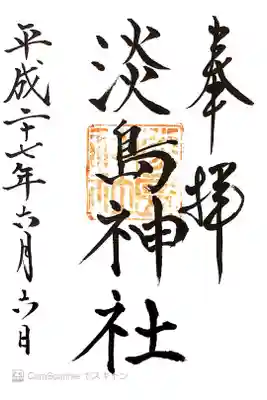 奉拝
淡島神社
平成二十七年六月六日
CamScanner でスキャン